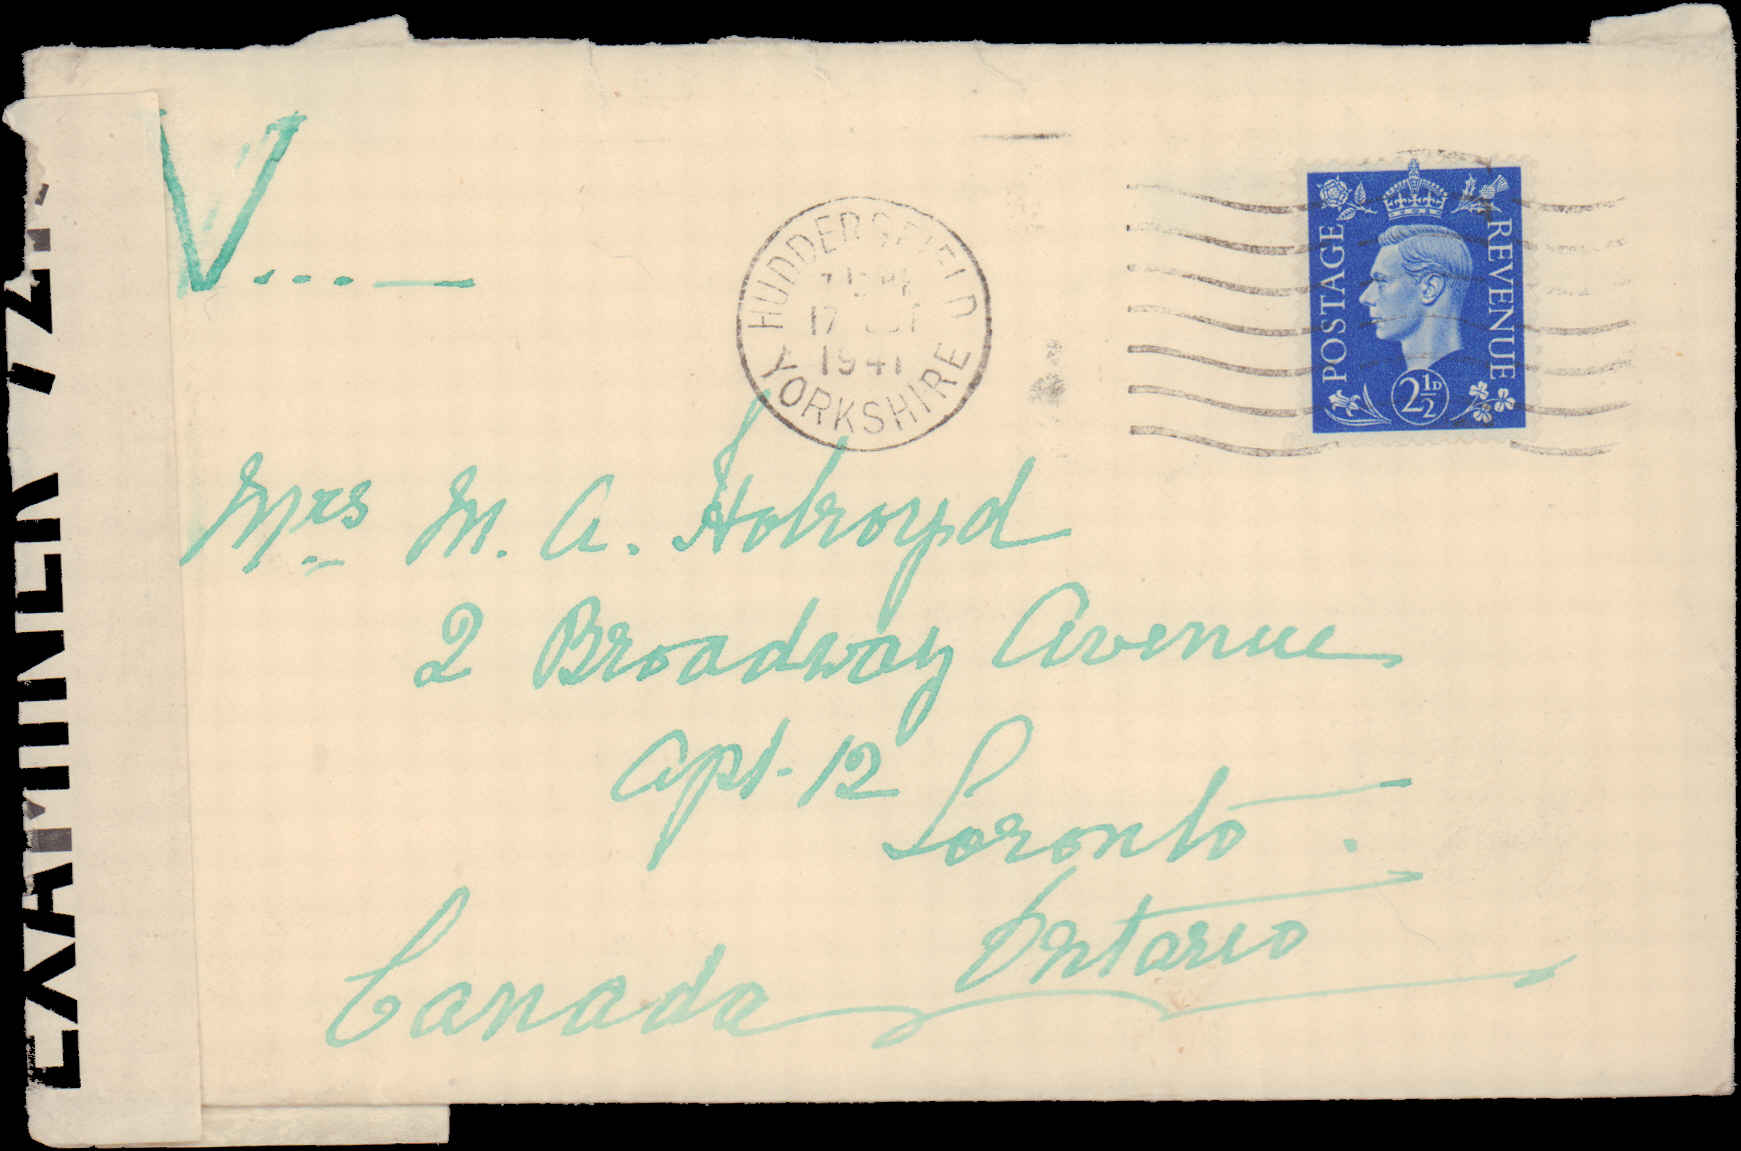 V...—
HUDDERSFIELD
17 OCT
1941
YORKSHIRE
POSTAGE
REVENUE
2½D
EXAMINER
Mrs M. A. Holroyd
2 Broadway Avenue
Apt. 12
Toronto.
Ontario
Canada